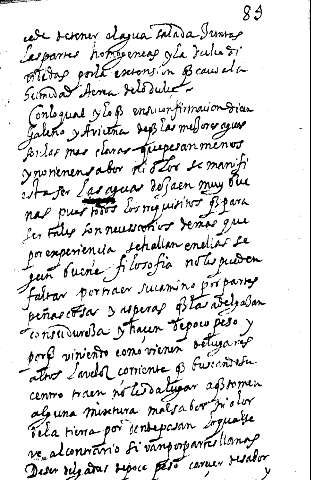 83
cede de tener el agua salada Juntas
las partes homogeneas y la dulce di
por la extension q̃ causa la
humidad Aerea de lo dulce
Con lo qual y lo q̃ en su confirmacion dicen
galeno y Avicena de q̃ las mejores aguas
son las mas claras que pesan menos
y no tienen sabor ni olor se manifi
esta ser las aguas de Jaen muy bue
nas pues todos los requisitos q̃ para
ser tales son necessarios demas que
por experiencia se hallan en ellas se
gun buena filosofia no les pueden
faltar por traer su camino por partes
peñascosas y asperas q̃ las adelgaçan
con su dureza y hacen de poco peso y
porq̃ viniendo como vienen de lugares
altos la veloz corriente q̃ buscando su
centro traen no les da lugar a q̃ tomen
alguna mixtura mal sabor ni olor
de la tierra por donde pasan lo qual se
ve al contrario si van por partes llanas
De ser delgadas de poco peso carecer de sabor y